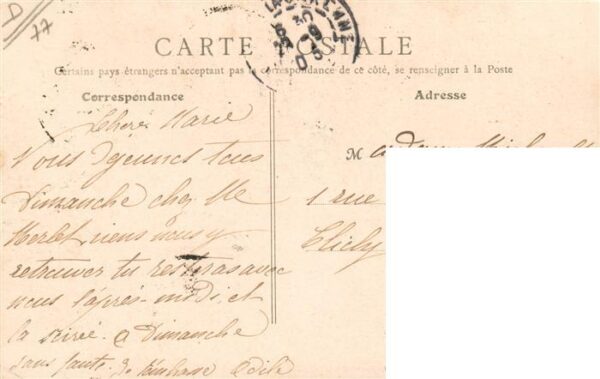 D
77
CARTE POSTALE
Certains pays étrangers n'acceptant pas la correspondance de ce côté, se renseigner à la Poste
Correspondance
Adresse
Chere Marie
Nous dejeunons tous
Dimanche chez Me
Merlet viens nous y
retrouver tu resteras avec
nous l'après-midi et
la soirée. a Dimanche
sans faute. Je t'embrasse Odile
Madame
1 rue
Clichy